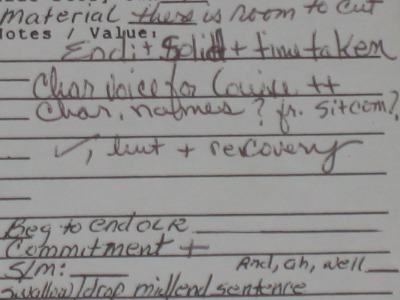 material there is room to cut
Notes / Value:
End: + Solid + time taken
Char voice for Louise ++
Char, names? fr. sitcom?
✓, but + recovery
Beg to end OLR
Commitment +
S/m: And, Oh, well
Swallow/drop mid/end sentence